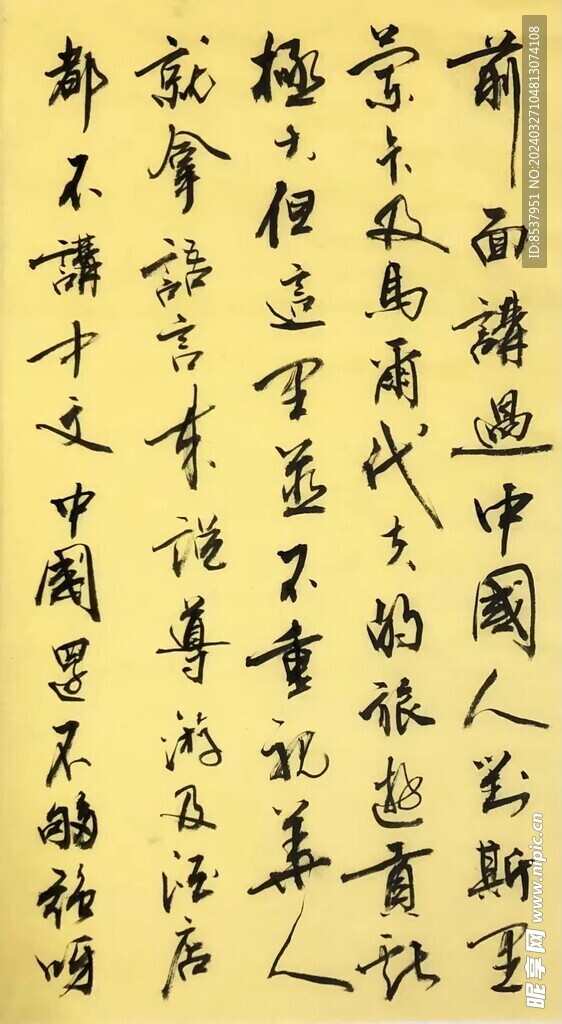 前面講過中國人對斯里
蘭卡及馬爾代夫的旅遊貢獻
極大但這里並不重視華人
就拿語言來説導游及酒店
都不講中文中國還不够強呀
ID:8537951 NO:20240327104813074108
昵享网 www.nipic.cn